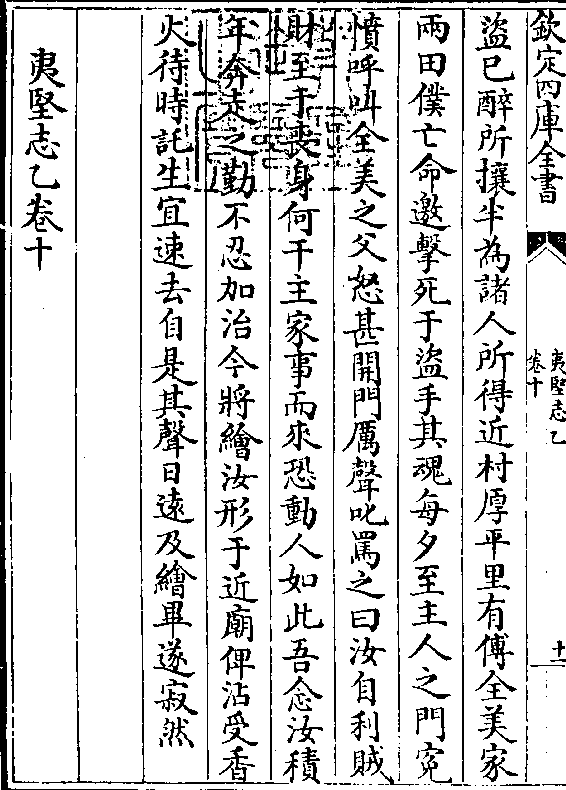 欽定四庫全書
夷堅志乙
卷十
十二
盜已醉所攘半為諸人所得近村厚平里有傅全美家
兩田僕亡命邀擊死于盜手其魂每夕至主人之門寃
憤呼叫全美之父怒甚開門厲聲叱罵之曰汝自利賊
財至于喪身何干主家事而來恐動人如此吾念汝積
年奔走之勤不忍加治今將繪汝形于近廟俾沾受香
火待時託生宜速去自是其聲日逺及繪畢遂寂然
夷堅志乙卷十